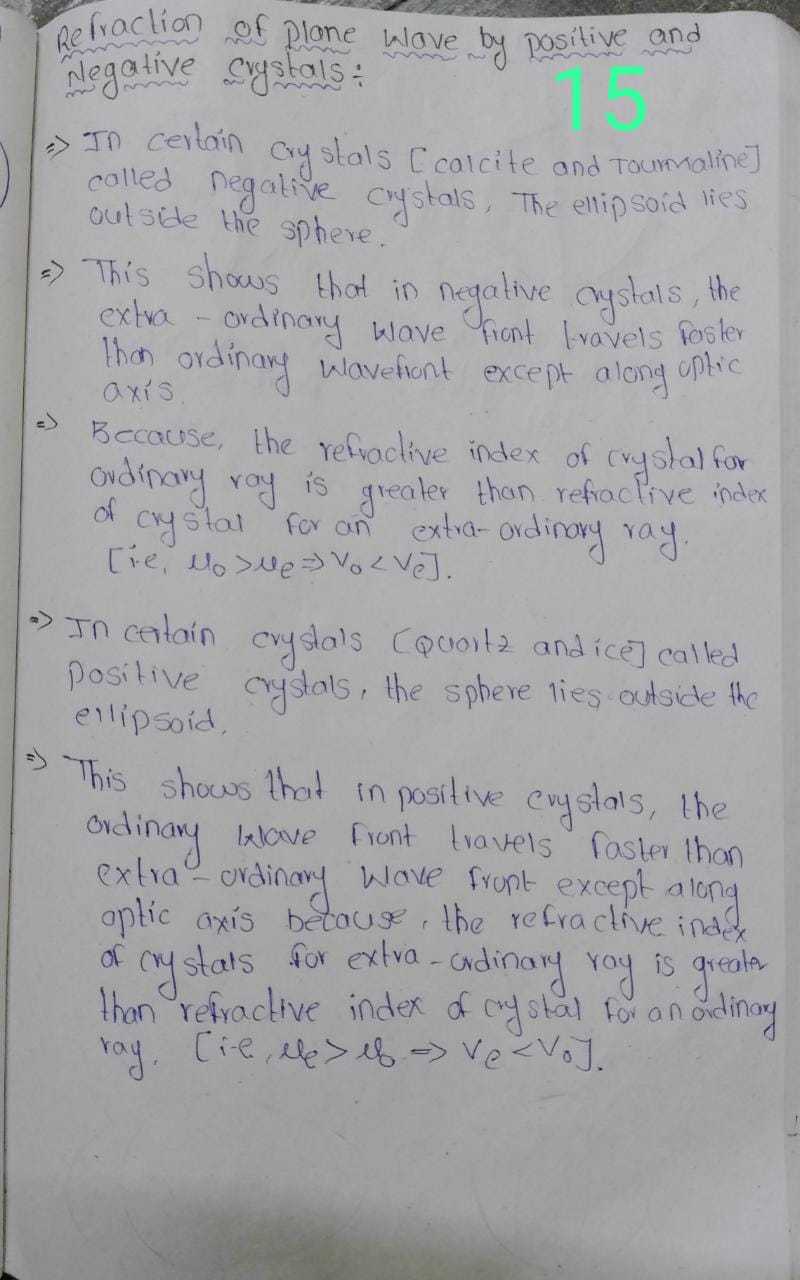 Refraction of plane wave by positive and
Negative Crystals:-
15
=> In certain crystals [calcite and Tourmaline]
called negative crystals, The ellipsoid lies
outside the sphere.
=> This shows that in negative crystals, the
extra - ordinary wave front travels faster
than ordinary wavefront except along optic
axis.
=> Because, the refractive index of crystal for
ordinary ray is greater than refractive index
of crystal for an extra-ordinary ray.
[i.e, μo>μe => Vo<Ve].
=> In certain crystals [Quartz and ice] called
positive crystals, the sphere lies outside the
ellipsoid.
=> This shows that in positive crystals, the
ordinary wave front travels faster than
extra - ordinary wave front except along
optic axis because, the refractive index
of crystals for extra-ordinary ray is greater
than refractive index of crystal for an ordinary
ray. [i-e, μe>μo => Ve<Vo].